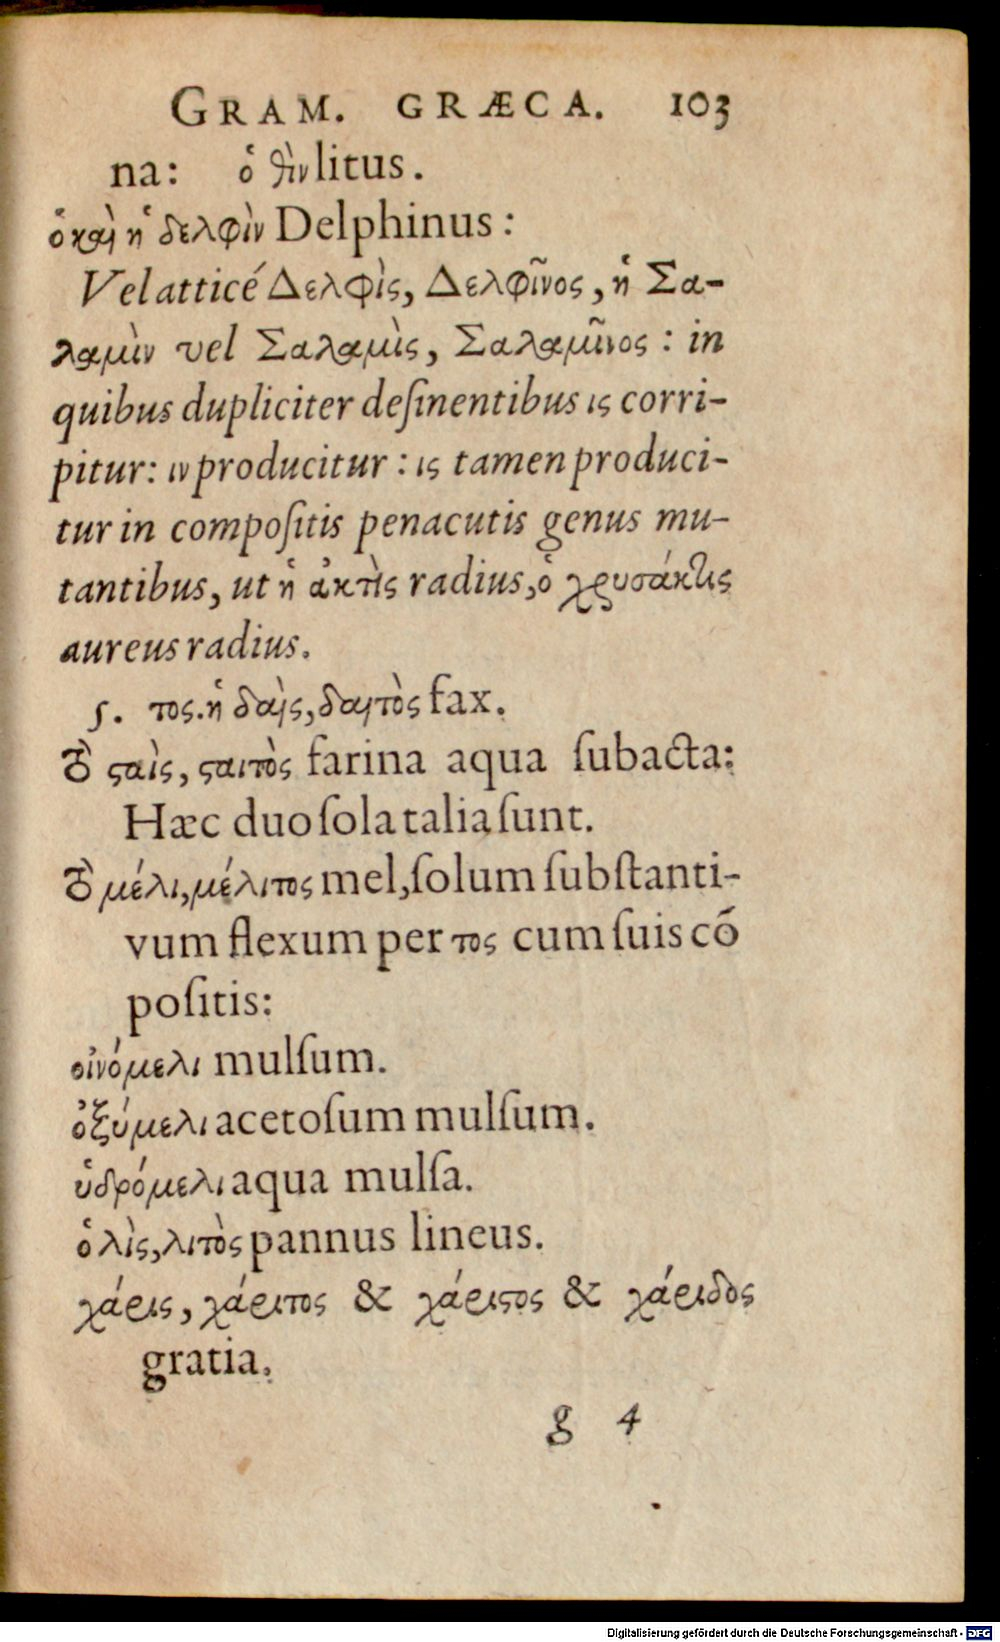 GRAM. GRÆCA. 103
na: ὁ θὶν litus.
ὁ καὶ ἡ δελφὶν Delphinus:
Vel atticé Δελφὶς, Δελφῖνος, ἡ Σα-
λαμὶν vel Σαλαμὶς, Σαλαμῖνος: in
quibus dupliciter deſinentibus ις corri-
pitur: ιν producitur: ις tamen produci-
tur in compoſitis penacutis genus mu-
tantibus, ut ἡ ἀκτὶς radius, ὁ χρυσάκτις
aureus radius.
5. τος. ἡ δαὶς, δαιτὸς fax.
Τὸ ςαὶς, ςαιτὸς farina aqua ſubacta:
Hæc duo ſola talia ſunt.
Τὸ μέλι, μέλιτος mel, ſolum ſubſtanti-
vum flexum per τος cum ſuis cõ
poſitis:
οἰνόμελι mulſum.
ὀξύμελι acetoſum mulſum.
ὑδρόμελι aqua mulſa.
ὁ λὶς, λιτὸς pannus lineus.
χάρις, χάριτος & χάριςος & χάριδος
gratia.
g 4
Digitalisierung gefördert durch die Deutsche Forschungsgemeinschaft - DFG